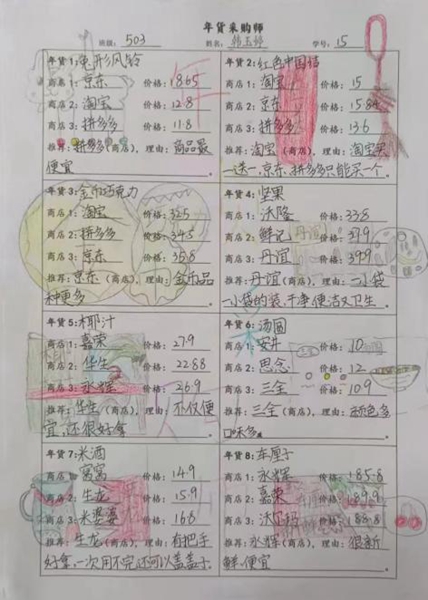 年货采购师
班级：503 姓名：韩玉婷 学号：15
年货1：兔形风铃
商店1：京东 价格：18.65
商店2：淘宝 价格：12.8
商店3：拼多多 价格：11.8
推荐：拼多多（商店），理由：商品最
便宜。
年货2：红色中国结
商店1：淘宝 价格：15
商店2：京东 价格：15.84
商店3：拼多多 价格：13.6
推荐：淘宝（商店），理由：淘宝买
一送一，京东、拼多多只能买一个。
年货3：金币巧克力
商店1：淘宝 价格：32.5
商店2：拼多多 价格：34.5
商店3：京东 价格：35.8
推荐：京东（商店），理由：金币品
种更多。
年货4：坚果
商店1：沃隆 价格：33.8
商店2：鲜记 价格：39.9
商店3：丹谊 价格：39.9
推荐：丹谊（商店），理由：一小袋
一小袋的装，干净便洁又卫生。
年货5：椰汁
商店1：嘉荣 价格：27.9
商店2：华生 价格：22.88
商店3：永辉 价格：26.9
推荐：华生（商店），理由：不仅便
宜，还很好拿。
年货6：汤圆
商店1：安井 价格：10
商店2：思念 价格：12
商店3：三全 价格：10.9
推荐：三全（商店），理由：颜色多
口味多。
年货7：米酒
商店1：窝窝 价格：14.9
商店2：生龙 价格：15.9
商店3：米婆婆 价格：16.8
推荐：生龙（商店），理由：有把手
好拿，一次用不完还可以盖盖子。
年货8：车厘子
商店1：永辉 价格：185.8
商店2：嘉荣 价格：189.9
商店3：价格：188.8
推荐：永辉（商店），理由：很新
鲜，便宜。